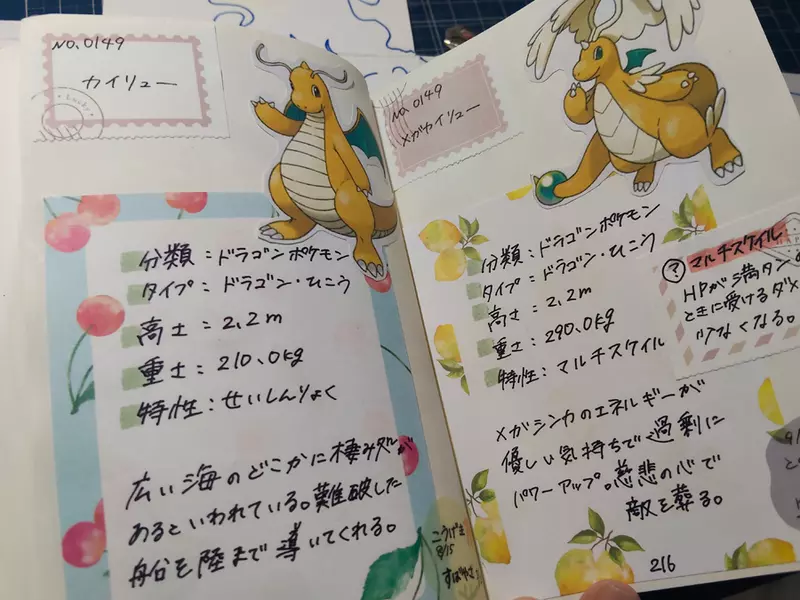 No.0149
カイリュー
Lucky
分類：ドラゴンポケモン
タイプ：ドラゴン・ひこう
高さ：2.2m
重さ：210.0kg
特性：せいしんりょく
広い海のどこかに棲み家が
あるといわれている。難破した
船を陸まで導いてくれる。
こうげき
8/15
すばやさ
No.0149
メガカイリュー
分類：ドラゴンポケモン
タイプ：ドラゴン・ひこう
高さ：2.2m
重さ：290.0kg
特性：マルチスケイル
? マルチスケイル
HPが満タンの
ときに受けるダメ
少なくなる。
メガシンカのエネルギーが
優しい気持ちで過剰に
パワーアップ。慈悲の心で
敵を葬る。
216